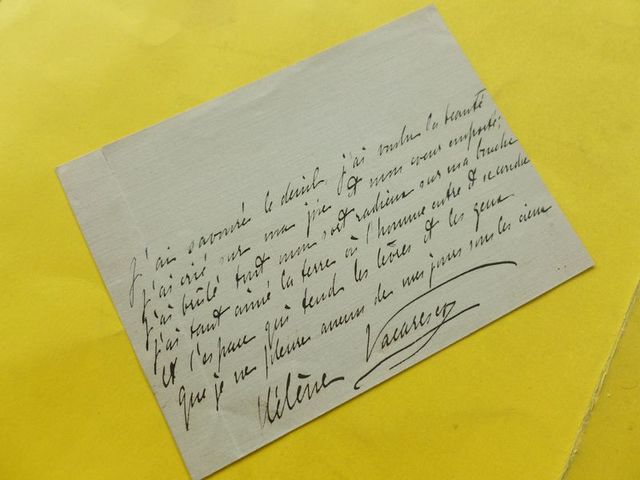 J'ai savouré le deuil, j'ai voulu la beauté
J'ai crié sur ma joie et mon cœur emporté;
J'ai brûlé tout mon sort radieux sur ma bouche
J'ai tant aimé la terre où l'homme entre et se couche
Et l'espace qui tend les lèvres et les yeux
que je ne pleure aucun de mes jours sous les cieux
Hélène Vacaresco